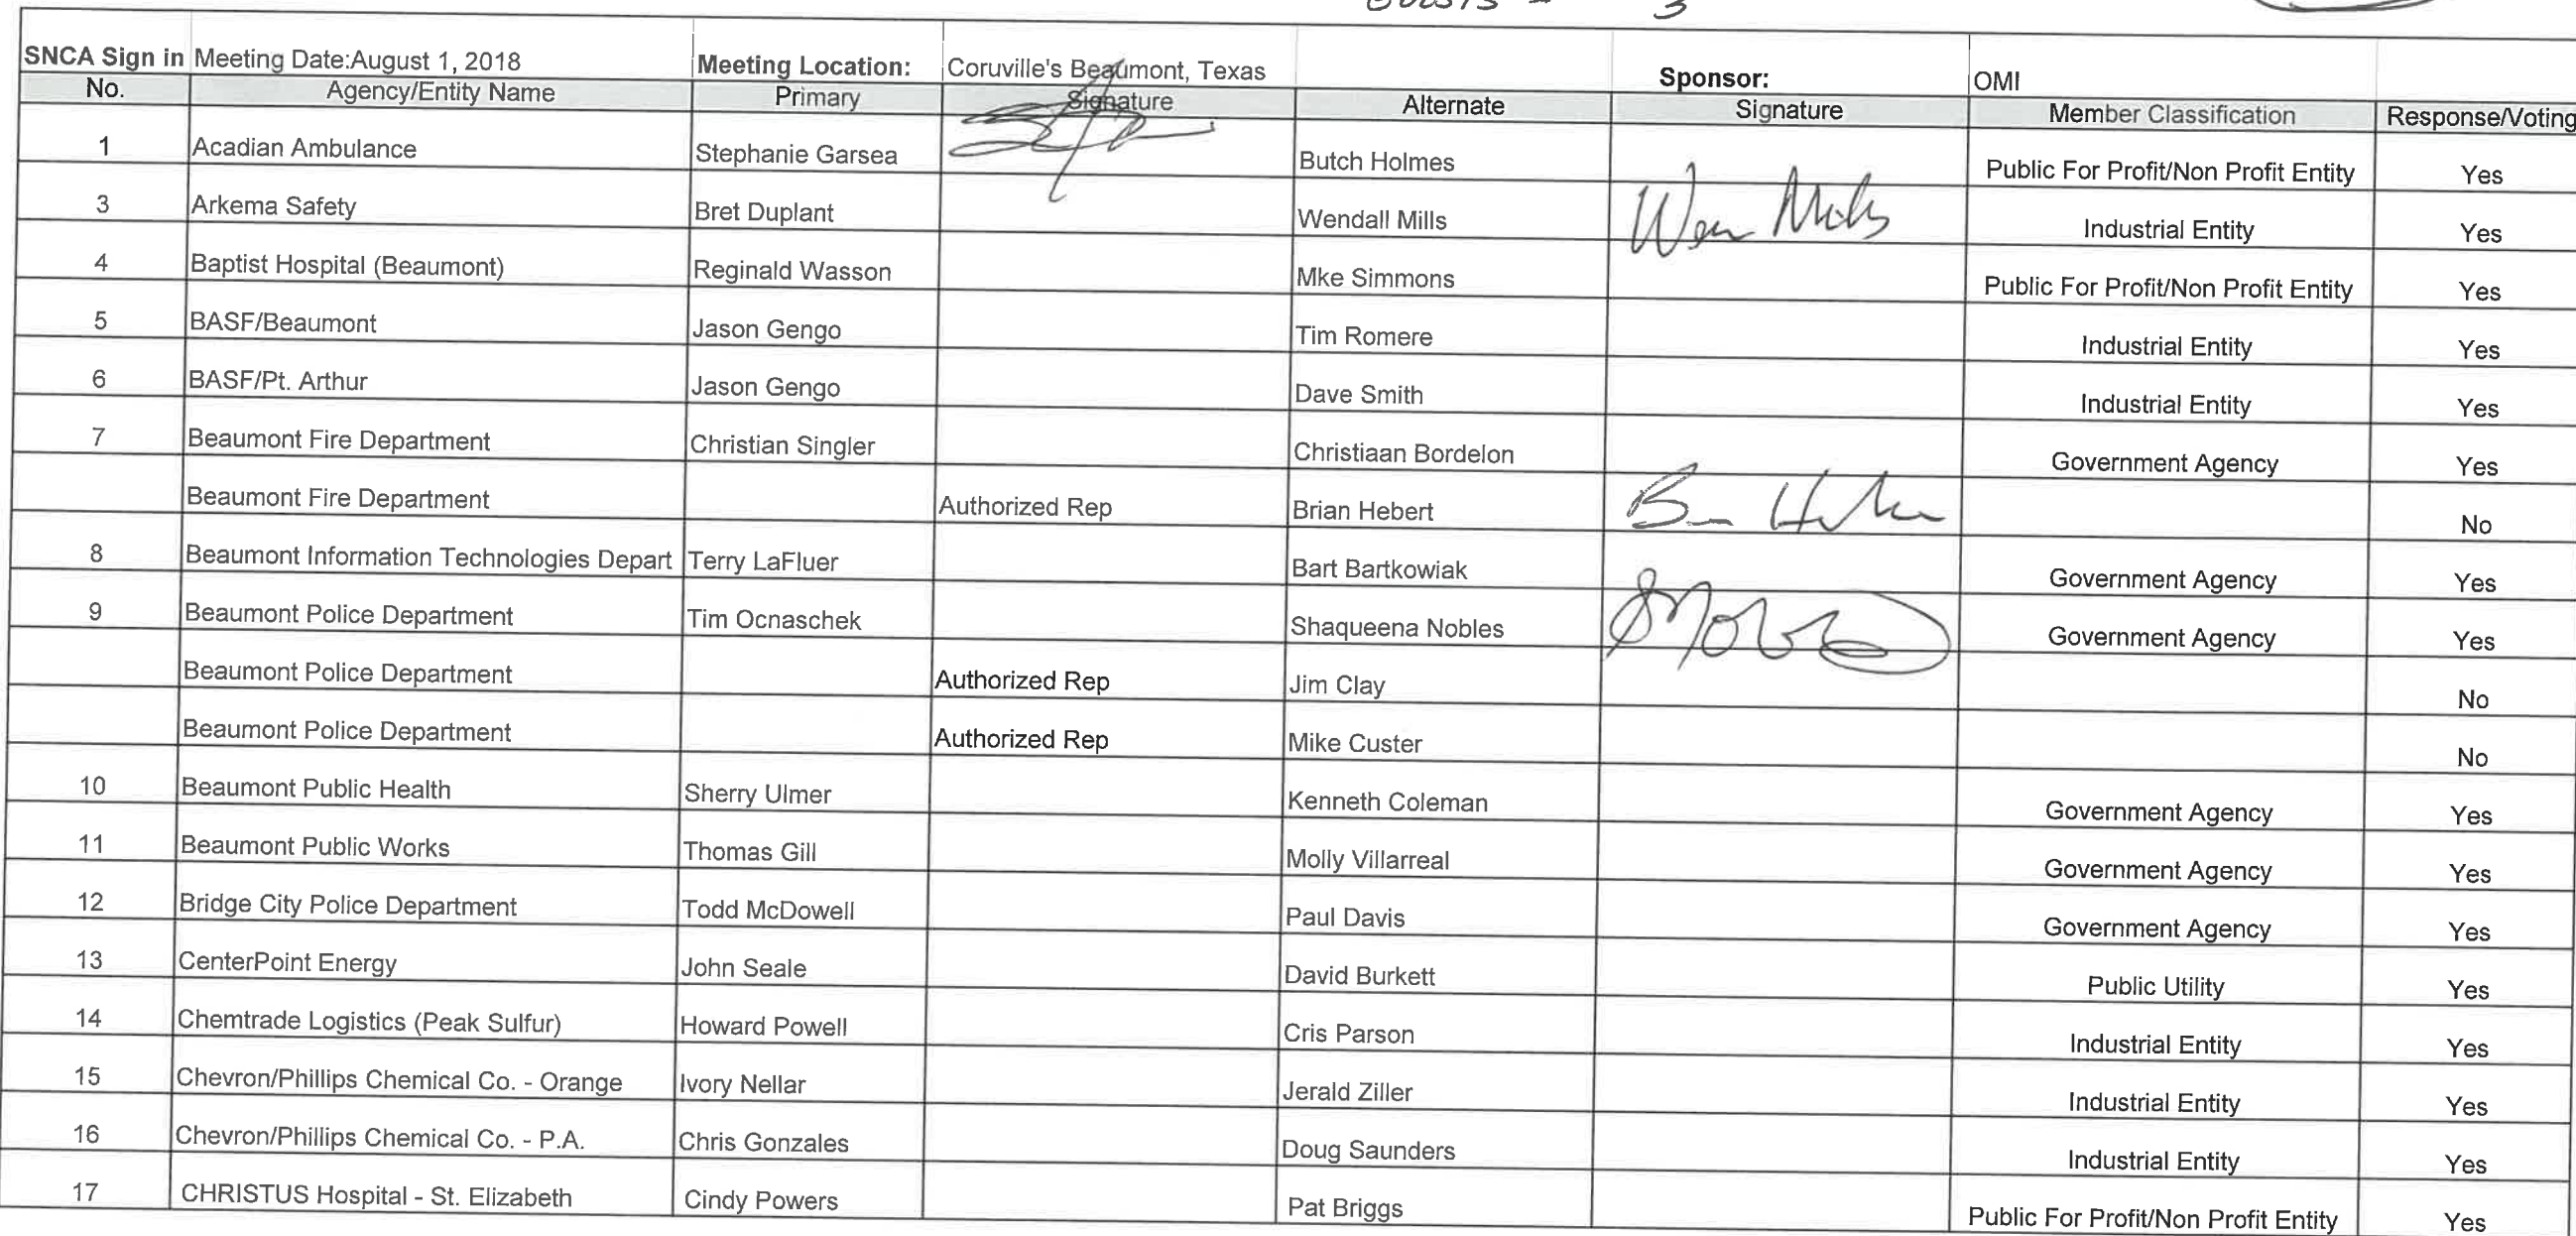 Guests - 3
SNCA Sign in Meeting Date:August 1, 2018 Meeting Location: Coruville's Beaumont, Texas Sponsor: OMI
No. Agency/Entity Name Primary Signature Alternate Signature Member Classification Response/Voting
1 Acadian Ambulance Stephanie Garsea Butch Holmes Public For Profit/Non Profit Entity Yes
3 Arkema Safety Bret Duplant Wendall Mills Wen Mills Industrial Entity Yes
4 Baptist Hospital (Beaumont) Reginald Wasson Mke Simmons Public For Profit/Non Profit Entity Yes
5 BASF/Beaumont Jason Gengo Tim Romere Industrial Entity Yes
6 BASF/Pt. Arthur Jason Gengo Dave Smith Industrial Entity Yes
7 Beaumont Fire Department Christian Singler Christiaan Bordelon Government Agency Yes
Beaumont Fire Department Authorized Rep Brian Hebert No
8 Beaumont Information Technologies Depart Terry LaFluer Bart Bartkowiak Government Agency Yes
9 Beaumont Police Department Tim Ocnaschek Shaqueena Nobles Government Agency Yes
Beaumont Police Department Authorized Rep Jim Clay No
Beaumont Police Department Authorized Rep Mike Custer No
10 Beaumont Public Health Sherry Ulmer Kenneth Coleman Government Agency Yes
11 Beaumont Public Works Thomas Gill Molly Villarreal Government Agency Yes
12 Bridge City Police Department Todd McDowell Paul Davis Government Agency Yes
13 CenterPoint Energy John Seale David Burkett Public Utility Yes
14 Chemtrade Logistics (Peak Sulfur) Howard Powell Cris Parson Industrial Entity Yes
15 Chevron/Phillips Chemical Co. - Orange Ivory Nellar Jerald Ziller Industrial Entity Yes
16 Chevron/Phillips Chemical Co. - P.A. Chris Gonzales Doug Saunders Industrial Entity Yes
17 CHRISTUS Hospital - St. Elizabeth Cindy Powers Pat Briggs Public For Profit/Non Profit Entity Yes